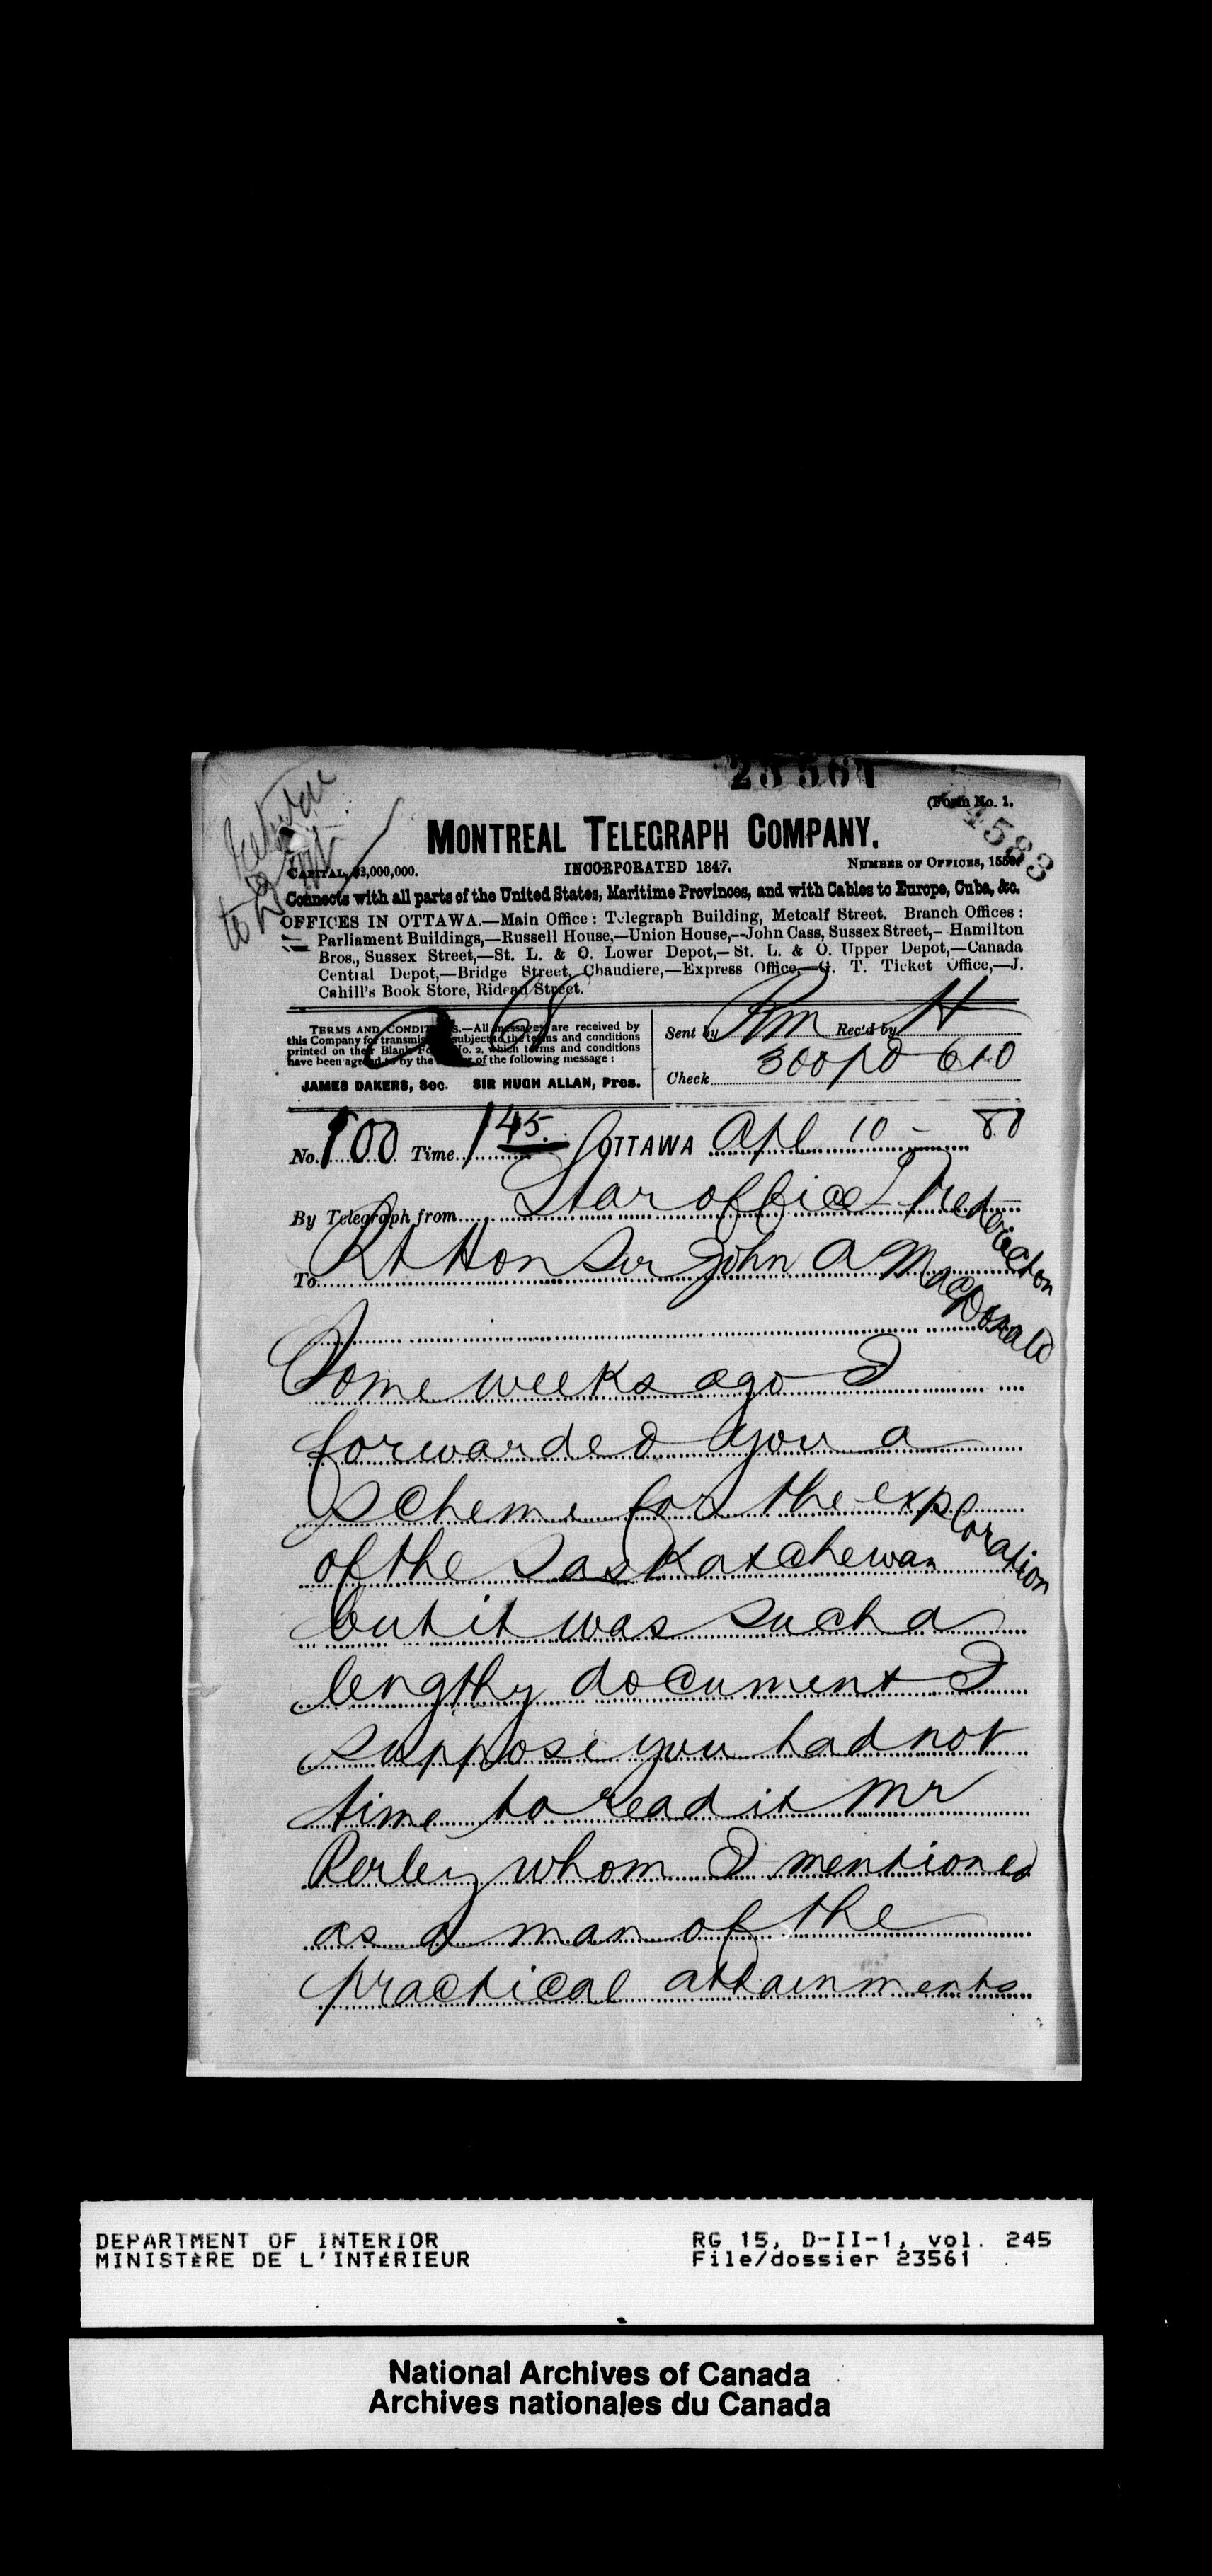 23561
(Form No. 1.
14583
MONTREAL TELEGRAPH COMPANY.
CAPITAL, $2,000,000. INCORPORATED 1847. NUMBER OF OFFICES, 1550.
Connects with all parts of the United States, Maritime Provinces, and with Cables to Europe, Cuba, &c.
OFFICES IN OTTAWA.—Main Office: Telegraph Building, Metcalf Street. Branch Offices:
Parliament Buildings,—Russell House,—Union House,—John Cass, Sussex Street,—Hamilton
Bros., Sussex Street,—St. L. & O. Lower Depot,—St. L. & O. Upper Depot,—Canada
Central Depot,—Bridge Street, Chaudiere,—Express Office,—G. T. Ticket Office,—J.
Cahill's Book Store, Rideau Street.
TERMS AND CONDITIONS.—All messages are received by
this Company for transmission, subject to the terms and conditions
printed on their Blank Form No. 2, which terms and conditions
have been agreed to by the sender of the following message:
JAMES DAKERS, Sec. SIR HUGH ALLAN, Pres.
Sent by Rm Rec'd by H
Check 300 pd 610
No. 100 Time 1 45 OTTAWA Apl 10 - 80
By Telegraph from Star office Fredericton
To Rt Hon Sir John A MacDonald
Some weeks ago I
forwarded you a
scheme for the exploration
of the Saskatchewan
but it was such a
lengthy document I
suppose you had not
time to read it Mr
Perley whom I mentioned
as a man of the
practical attainments
DEPARTMENT OF INTERIOR
MINISTÈRE DE L'INTÉRIEUR
RG 15, D-II-1, vol. 245
File/dossier 23561
National Archives of Canada
Archives nationales du Canada